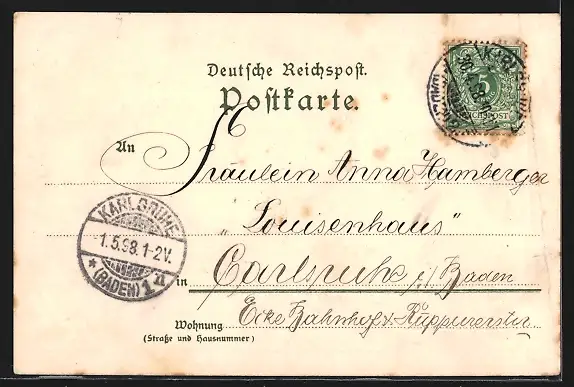 Deutsche Reichspost.
Postkarte.
5
REICHSPOST
An Fräulein Anna Hamberger
"Louisenhaus"
KARLSRUHE
-1.5.98.1-2V.
* (BADEN) 1
in Carlsruhe i/ Baden
Wohnung Ecke Bahnhof & Rüppurerstr
(Straße und Hausnummer)